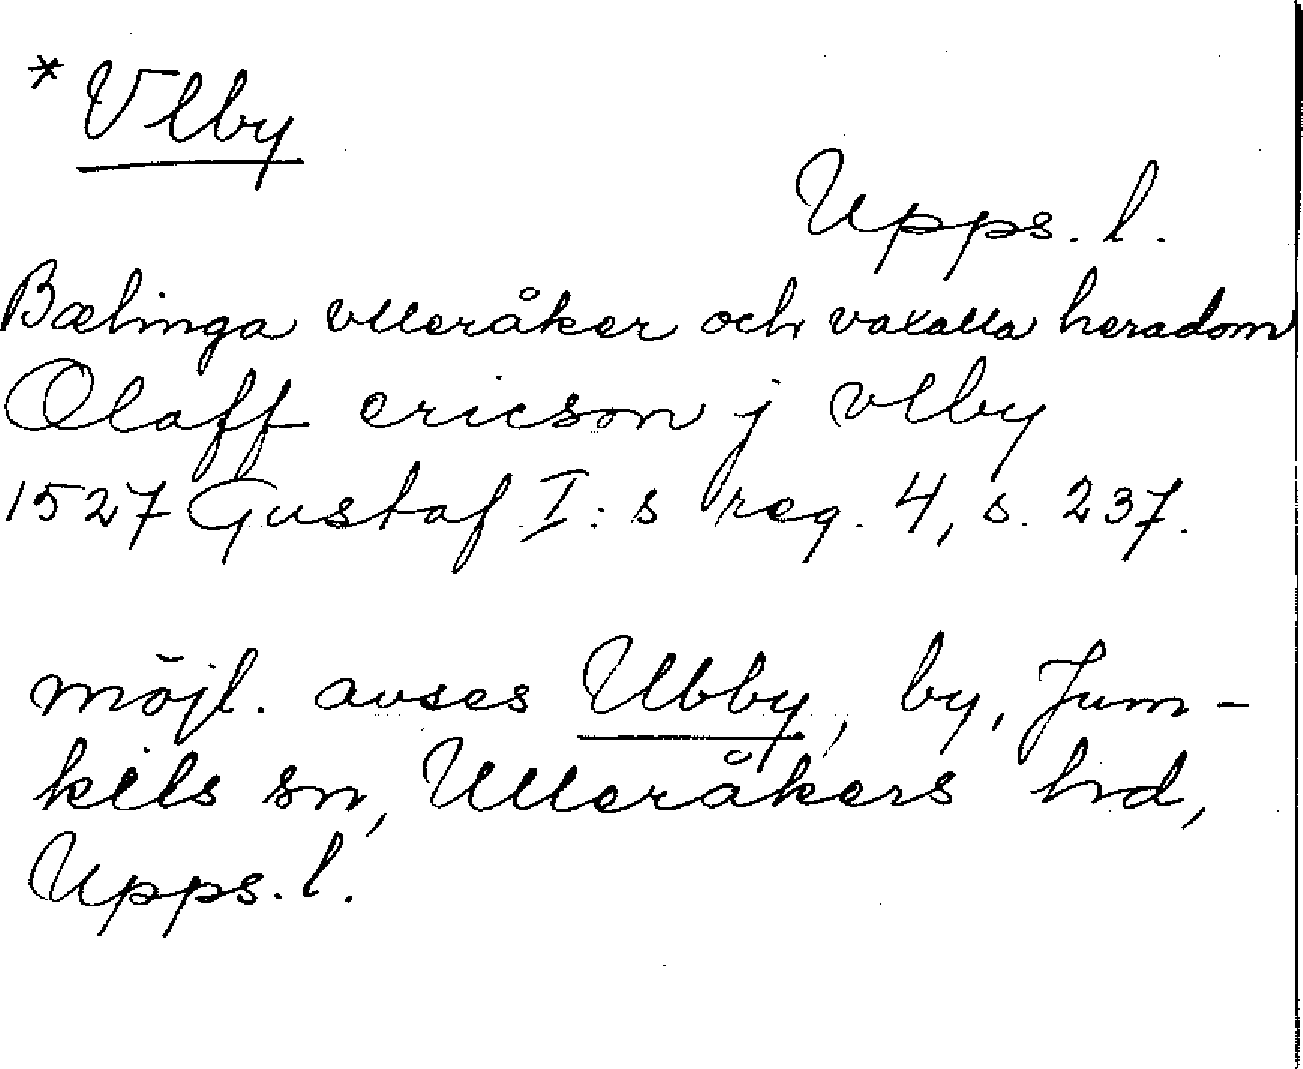 * Vlby
Upps. l.
Bælinga vlleråker och vaxalla heradom
Olaff ericson j vlby
1527 Gustaf I:s reg. 4, s. 237.
möjl. avses Ubby, by, Jum-
kils sn, Ulleråkers hd,
Upps. l.